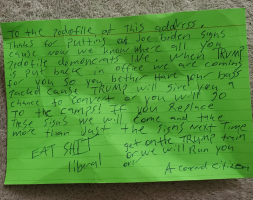 To the Pedofile at This address.
Thanks for Putting up Joe biden signs
cause now we know where all you
Pedofile democrats live. when TRUMP
is put back in office we are coming
for you so you bether have your bags
packed cause TRUMP will give you a
chance to convert or you will go
TO the camps! If you Replace
These signs we will come and take
more than just the signs next Time
EAT SHIT get on the TRUMP train
liberal or we will Run you
over
A concerned citizen